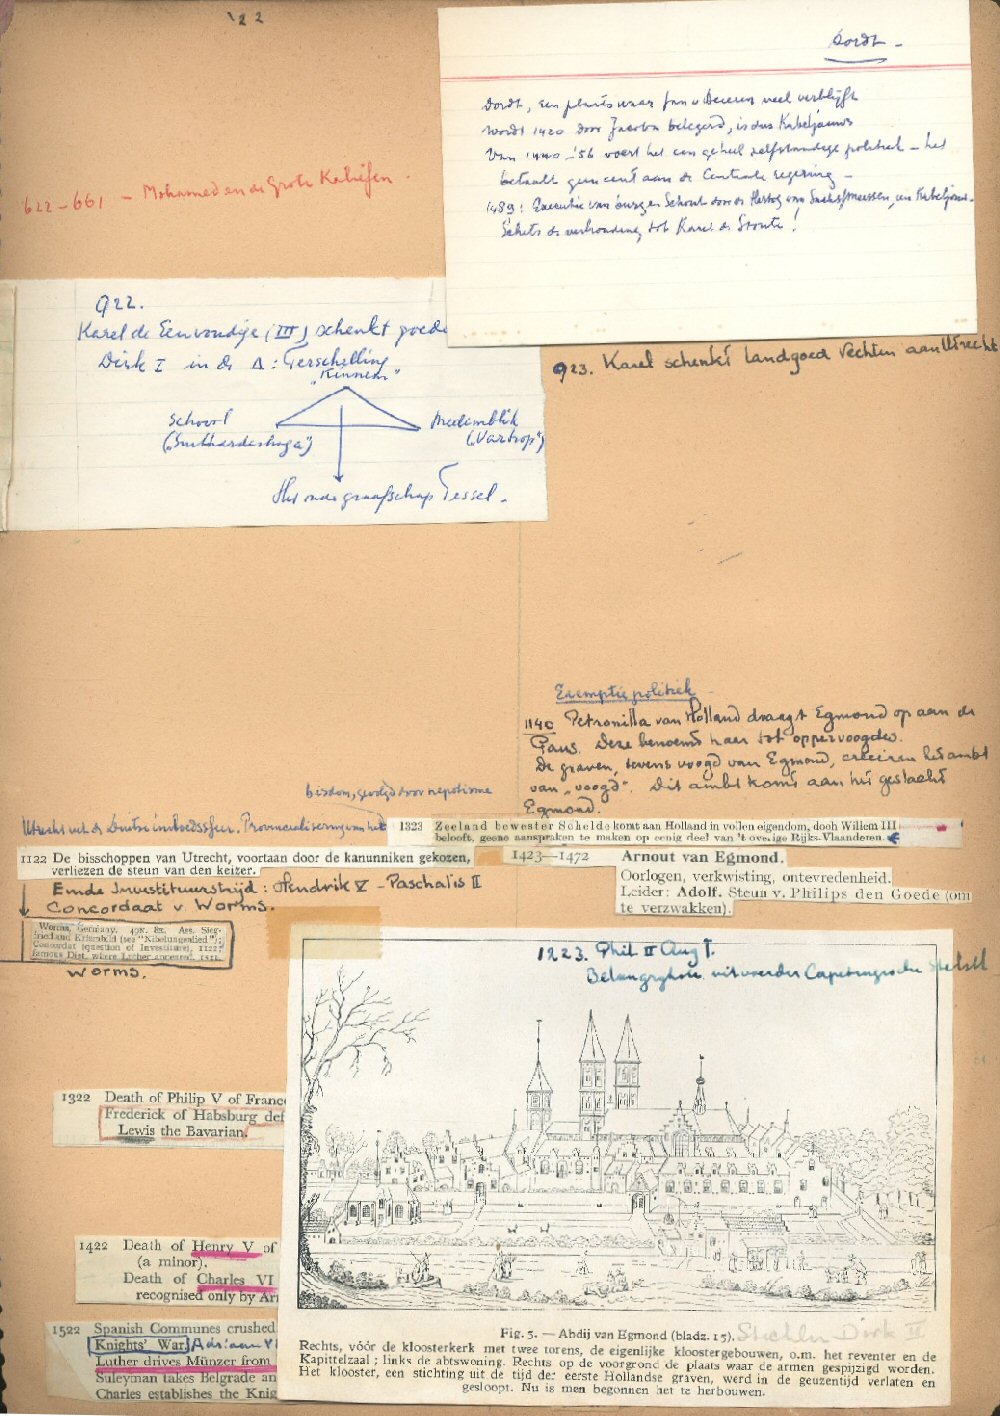 '22
Dordt -
Dordt, een plaats waar Jan v Beieren veel verblijft
wordt 1420 door Jacoba belegerd, is dus Kabeljauws
Van 1440-'56 voert het een geheel zelfstandige politiek - het
betaalt geen cent aan de Centrale regering -
1489: Executie van burg en Schout door de Hertog van Saksen,
Schets de verhouding tot Karel de Stoute!
622-661 - Mohamed en de Grote Kaliefen.
922.
Karel de Eenvoudige (III) schenkt goede
Dirk I in de Δ: Terschelling
"Kinnem"
Schoorl
Medemblik
("Vartrop")
Het oude graafschap Tessel.
923. Karel schenkt landgoed Vechten aan Utrecht
Exemptie politiek
1140 Petronilla van Holland draagt Egmond op aan de
Paus. Deze benoemt haar tot oppervoogdes.
De graven, tevens voogd van Egmond, creëren het ambt
van "voogd". Dit ambt komt aan het geslacht
Egmond.
bisdom, gevolgd door nepotisme
Utrecht uit de Duitse invloedssfeer. Provincialisering van het
1323 Zeeland bewester Schelde komt aan Holland in vollen eigendom, doch Willem III
belooft, geene aanspraken te maken op eenig deel van 't overige Rijks-Vlaanderen.
1122 De bisschoppen van Utrecht, voortaan door de kanunniken gekozen,
verliezen de steun van den keizer.
1423—1472 Arnout van Egmond.
Oorlogen, verkwisting, ontevredenheid.
Leider: Adolf. Steun v. Philips den Goede (om
te verzwakken).
Einde Investituurstrijd: Hendrik V - Paschalis II
Concordaat v. Worms.
Worms, Germany. 49N. 8E. Ass. Sieg-
fried and Kriemhild (see "Nibelungenlied");
Concordat (question of Investiture), 1122;
famous Diet, where Luther appeared, 1521.
Worms.
1223. Phil II Aug †.
Belangrijkste uitvoerder Capetingische Stelsel
1322 Death of Philip V of France
Frederick of Habsburg def
Lewis the Bavarian.
1422 Death of Henry V of
(a minor).
Death of Charles VI
recognised only by Ar
1522 Spanish Communes crushed
Knights' War. Adriaan VI
Luther drives Münzer from
Suleyman takes Belgrade an
Charles establishes the Knig
Fig. 5. — Abdij van Egmond (bladz. 15). Stichter Dirk II
Rechts, vóór de kloosterkerk met twee torens, de eigenlijke kloostergebouwen, o.m. het reventer en de
Kapittelzaal; links de abtswoning. Rechts op de voorgrond de plaats waar de armen gespijzigd worden.
Het klooster, een stichting uit de tijd der eerste Hollandse graven, werd in de geuzentijd verlaten en
gesloopt. Nu is men begonnen het te herbouwen.